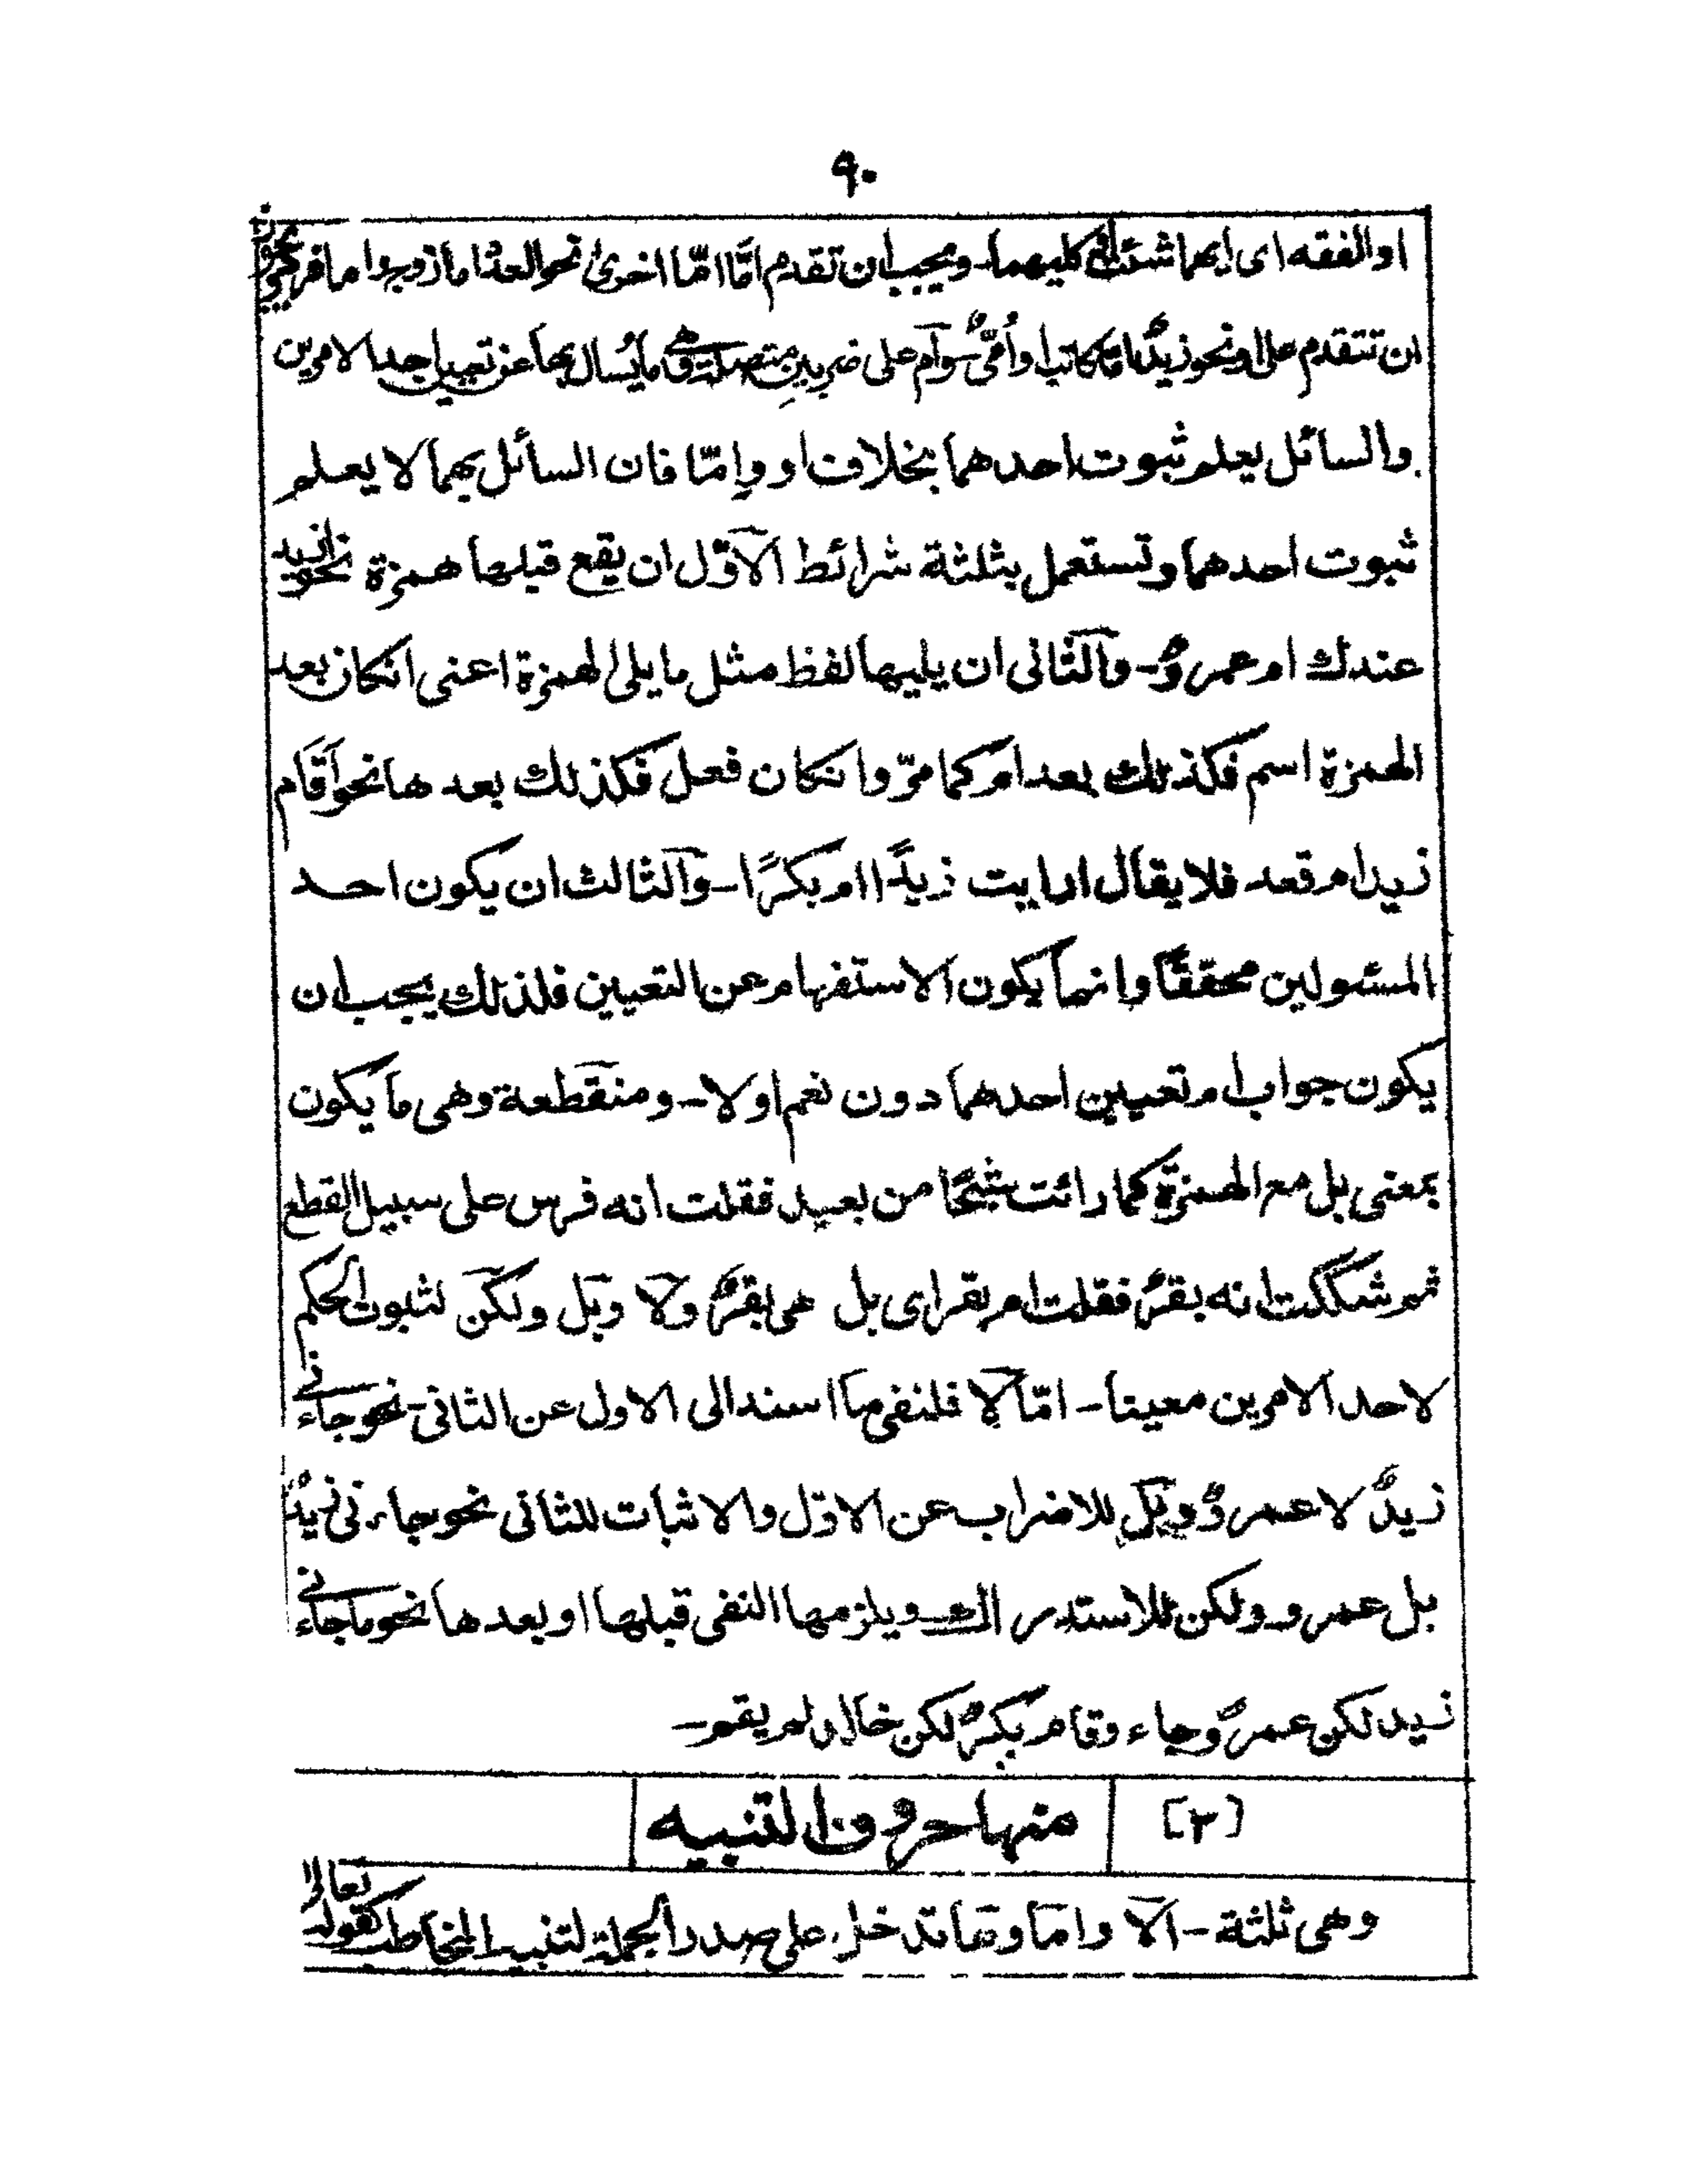 ٩٠
او الفقه اى ايهما شئت كليهما۔ ويجب ان تقدم امّا امّا اخرىٰ نحو العدد اما زوج واما فرد يجوز
ان تتقدم على او نحو زيدٌ امّا كاتب او اُمّيٌّ وآم على ضربين متصلة وهى ما يُسال بها عن تعيين احد الامرين
والسائل يعلم ثبوت احدهما بخلاف او وإمّا فان السائل بهما لا يعلم
ثبوت احدهما وتستعمل بثلثة شرائط الآوّل ان يقع قبلها همزة نحو ازيد
عندك ام عمروٌ۔ والثّانى ان يليها لفظ مثل ما يلى الهمزة اعنى انكان بعد
الهمزة اسم فكذلك بعد ام كما مرّ وانكان فعل فكذلك بعدها نحو آقام
زيد ام قعد فلا يقال ارايت زيدًا ام بكرًا۔ والثالث ان يكون احد
المسئولين محققًا وانما يكون الاستفهام عن التعيين فلذلك يجب ان
يكون جواب ام تعيين احدهما دون نعم او لا۔ ومنقطعة وهى ما يكون
بمعنى بل مع الهمزة كما رائت شبحًا من بعيد فقلت انه فرس على سبيل القطع
ثم شككت انه بقرٌ فقلت ام بقر اى بل هى بقرٌ ولآ وبل ولكن لثبوت الحكم
لاحد الامرين معينا۔ امّا لآ فلنفى ما اسند الى الاول عن الثانى۔ نحو جاءنى
زيدٌ لا عمروٌ وبل للاضراب عن الاوّل والاثبات للثانى نحو جاءنى زيدٌ
بل عمرو۔ ولكن للاستدراك ويلزمها النفى قبلها او بعدها نحو ماجاءنى
زيد لكن عمروٌ جاء وقام بكرٌ لكن خالد لم يقم۔
[٣] منها حروف التنبيه
وهى ثلثة۔ آلا واما وها تدخل على صدر الجملة لتنبيه المخاطب كقوله تعالىٰ